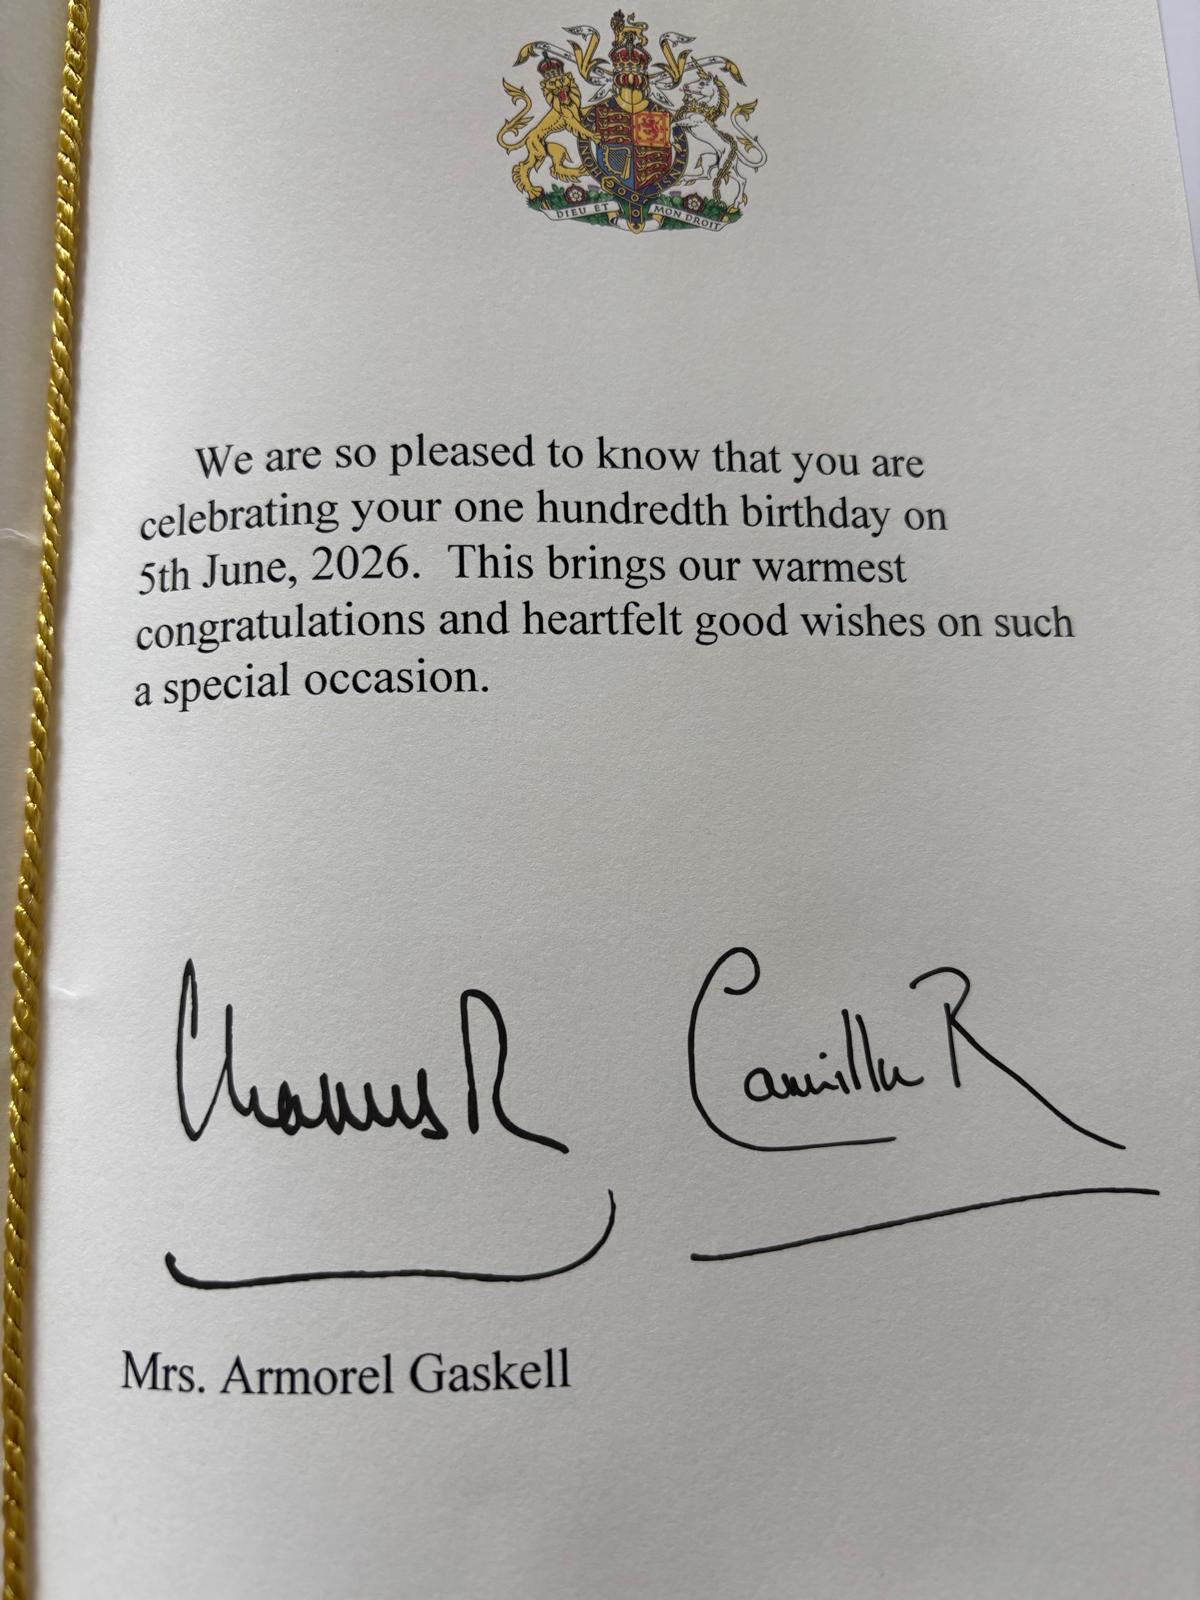 DIEU ET MON DROIT
We are so pleased to know that you are
celebrating your one hundredth birthday on
5th June, 2026. This brings our warmest
congratulations and heartfelt good wishes on such
a special occasion.
Charles R Camilla R
Mrs. Armorel Gaskell